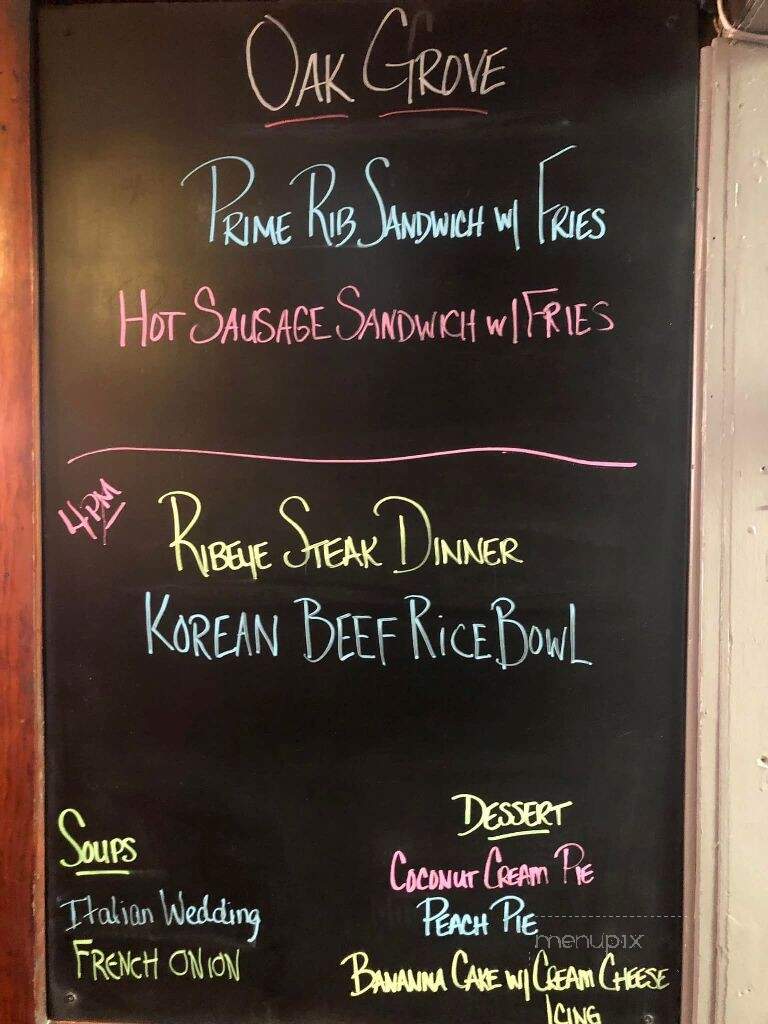 OAK GROVE
PRIME RIB SANDWICH W/ FRIES
HOT SAUSAGE SANDWICH W/ FRIES
4PM
RIBEYE STEAK DINNER
KOREAN BEEF RICE BOWL
SOUPS
Italian Wedding
FRENCH ONION
DESSERT
COCONUT CREAM PIE
PEACH PIE
BANANNA CAKE W/ CREAM CHEESE
ICING
menupix